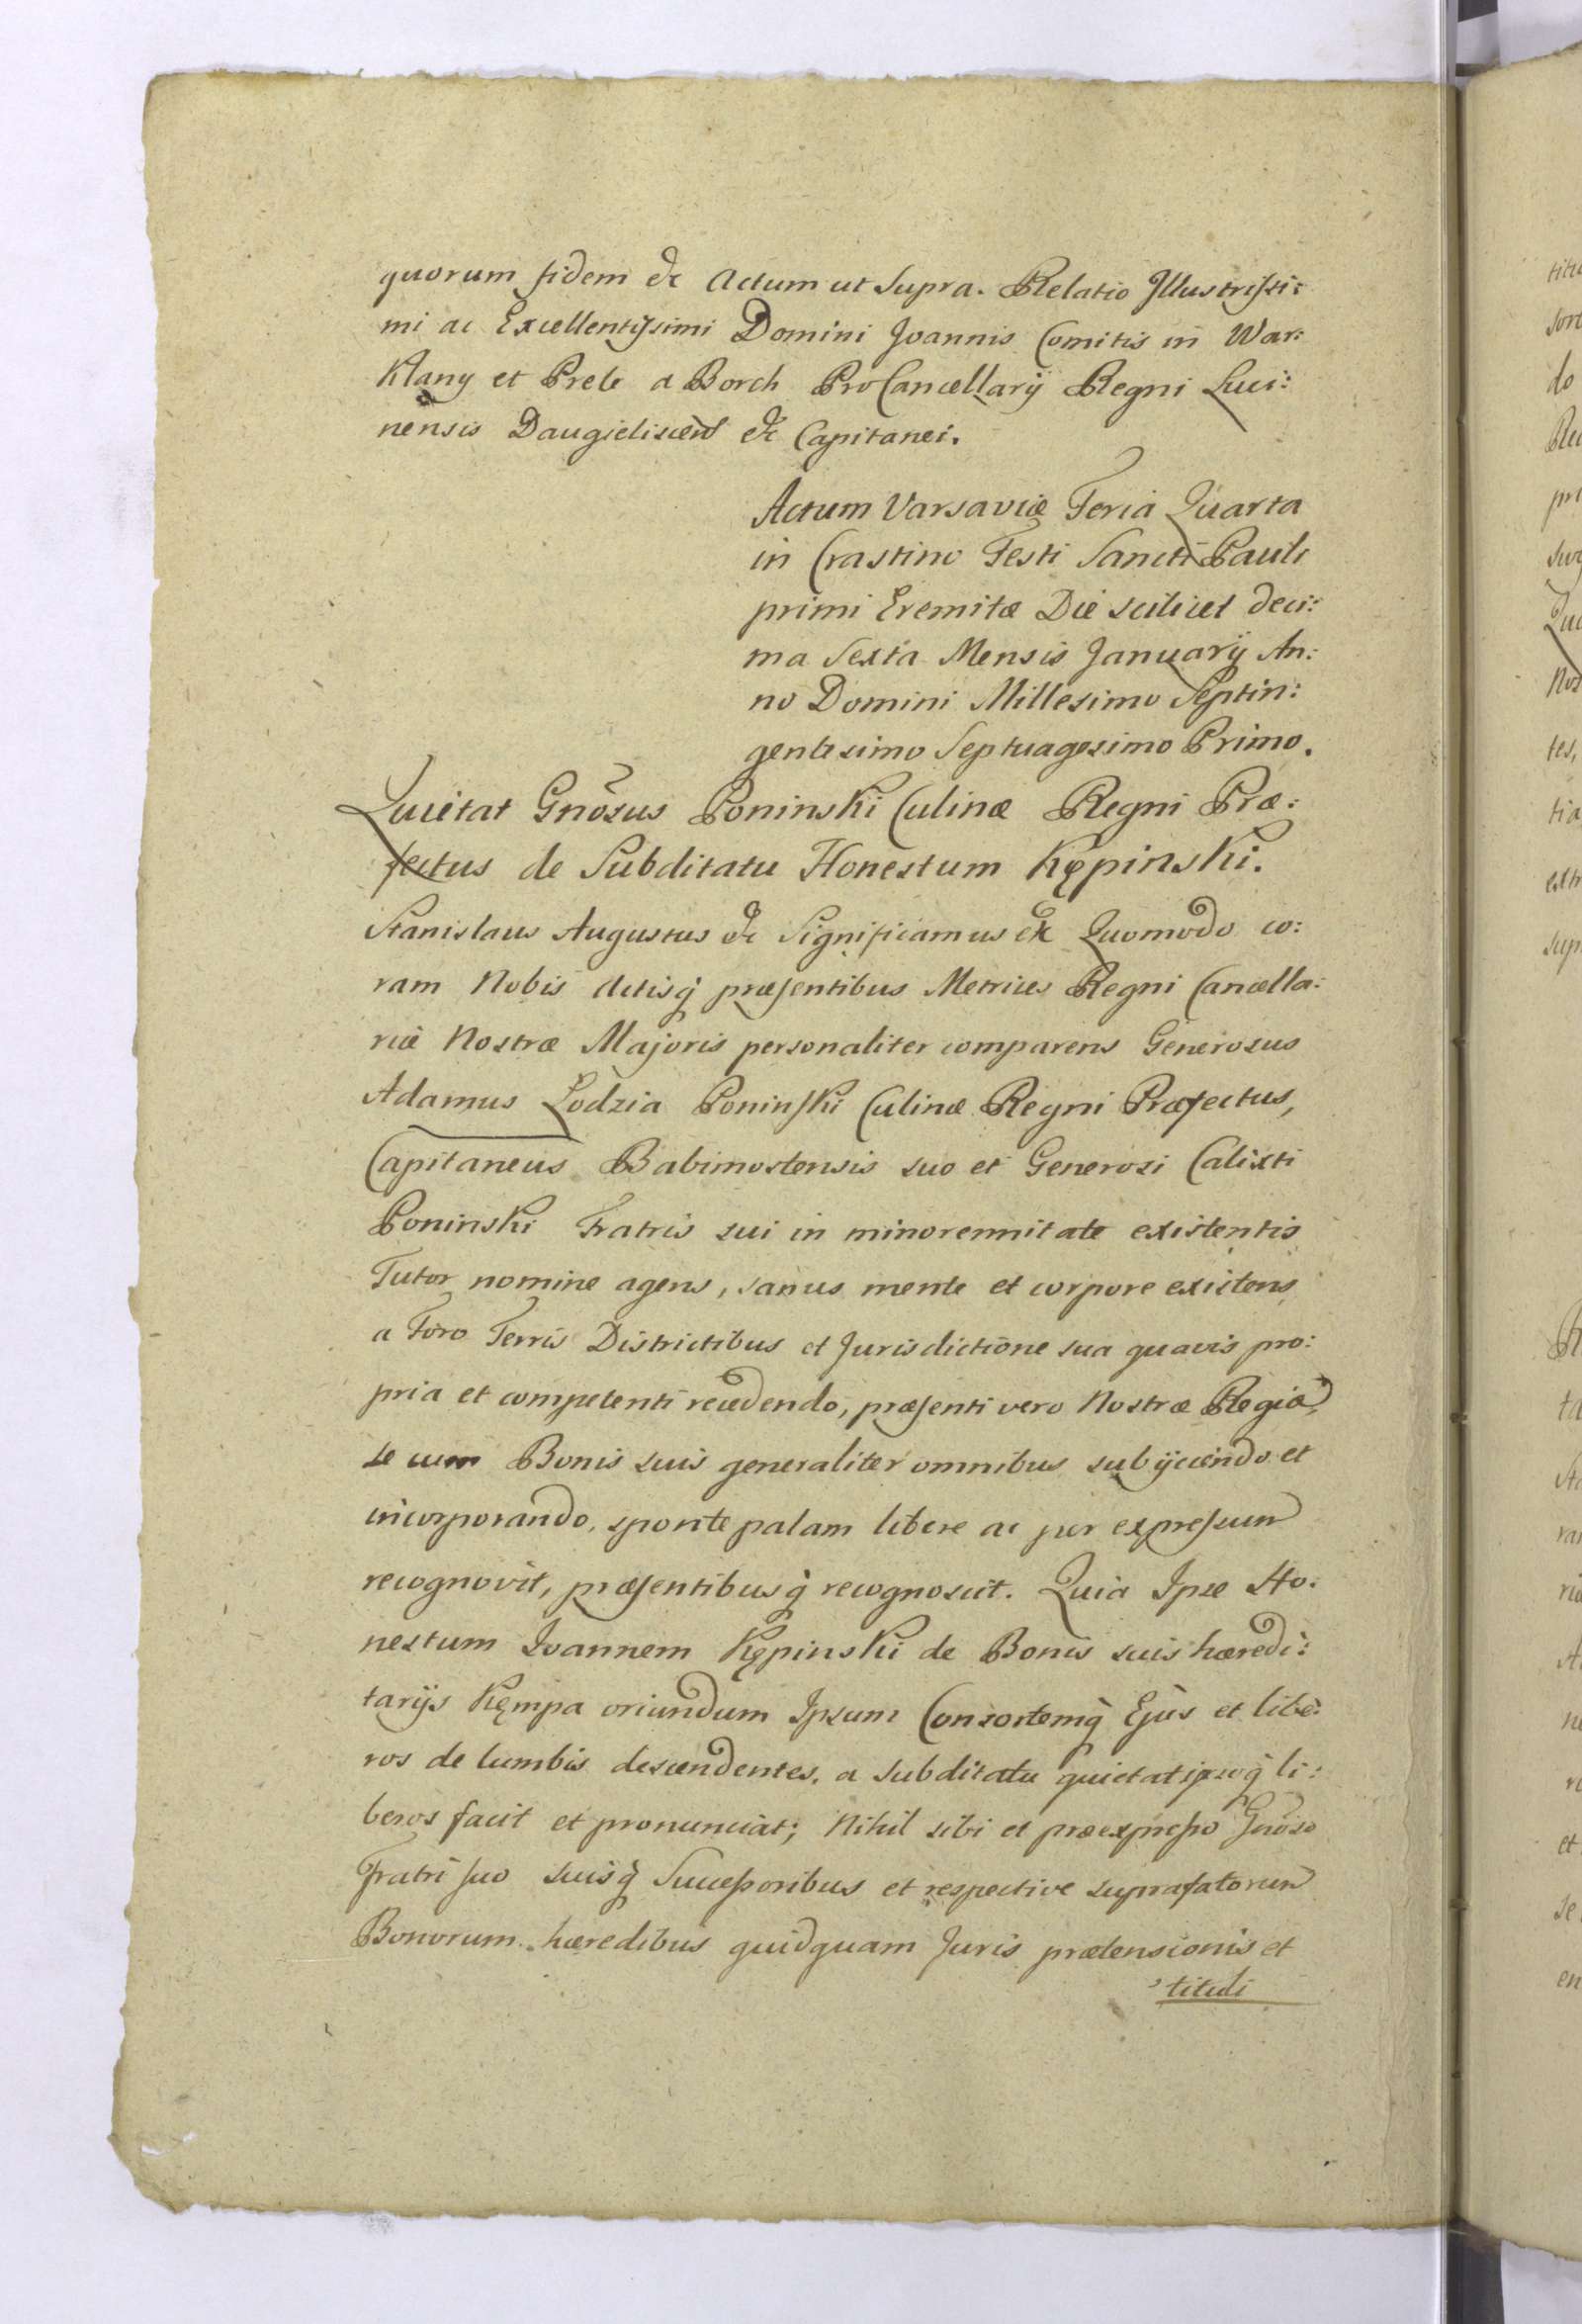 quorum fidem &c Actum ut Supra. Relatio Illustrissi:
mi ac Excellentissimi Domini Joannis Comitis in War:
Klany et Prele a Borch ProCancellarij Regni Luci:
nensis Daugieliscens &c Capitanei.
Actum Varsaviæ Feria Quarta
in Crastino Festi Sancti Pauli
primi Eremitæ Die scilicet deci:
ma Sexta Mensis Januarij An:
no Domini Millesimo Septin:
gentesimo Septuagesimo Primo.
Quietat Gnōsus Poninski Culinæ Regni Præ:
fectus de Subditatu Honestum Kępinski.
Stanislaus Augustus &c Significamus &c Quomodo co:
ram Nobis Actisq̀ præsentibus Metrices Regni Cancella:
riæ Nostræ Majoris personaliter comparens Generosus
Adamus Lodzia Poninski Culinæ Regni Præfectus,
Capitaneus Babimostensis suo et Generosi Calixti
Poninski Fratris sui in minorennitate existentis
Tutor nomine agens, sanus mente et corpore existens
a Foro Terris Districtibus et Jurisdictione sua quavis pro:
pria et competenti recedendo, præsenti vero Nostræ Regiæ,
se cum Bonis suis generaliter omnibus subijciendo et
incorporando, sponte palam libere ac per expressum
recognovit, præsentibusq̀ recognoscit. Quia Ipse Ho:
nestum Ioannem Kępinski de Bonis suis hæredi:
tarijs Kępmpa oriundum Ipsum Consortemq̀ Ejus et libe:
ros de lumbis descendentes, a subditatu quietat ipsosq̀ li:
beros facit et pronunciat; Nihil sibi et præexpresso Gnōso
Fratri suo suisq̀ Successoribus et respective suprafatorum
Bonorum hæredibus quidquam Juris prætensionis et
tituli